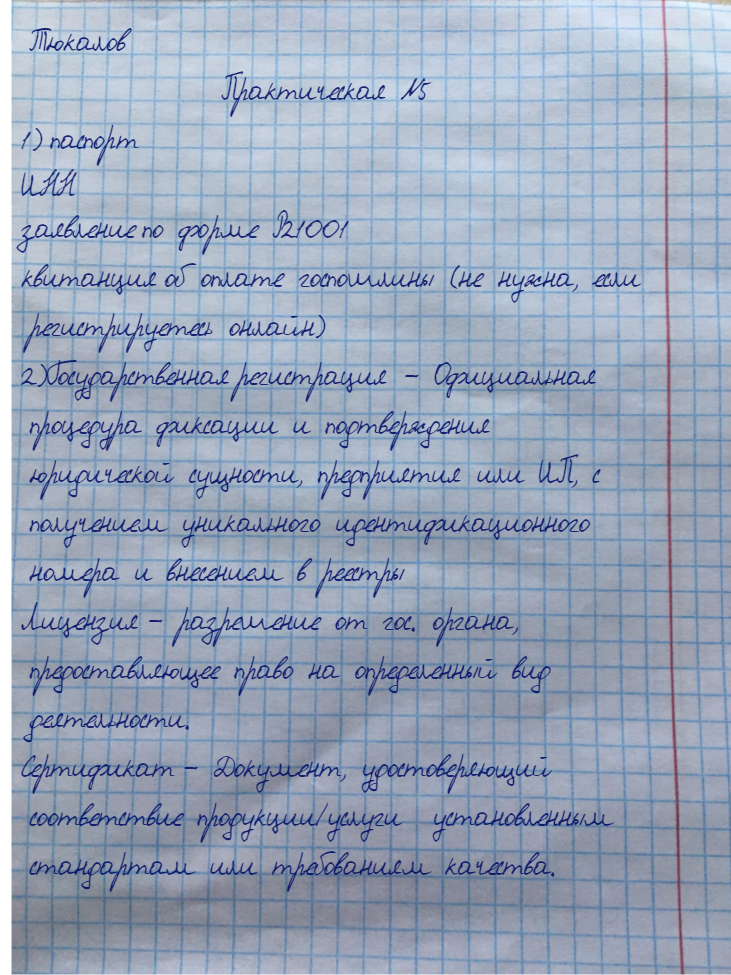 Тюкалов
Практическая №5
1) паспорт
ИНН
заявление по форме Р21001
квитанция об оплате госпошлины (не нужна, если
регистрируетесь онлайн)
2) Государственная регистрация – Официальная
процедура фиксации и подтверждения
юридической сущности, предприятия или ИП, с
получением уникального идентификационного
номера и внесением в реестры
Лицензия – разрешение от гос. органа,
предоставляющее право на определенный вид
деятельности.
Сертификат – Документ, удостоверяющий
соответствие продукции/услуги установленным
стандартам или требованиям качества.